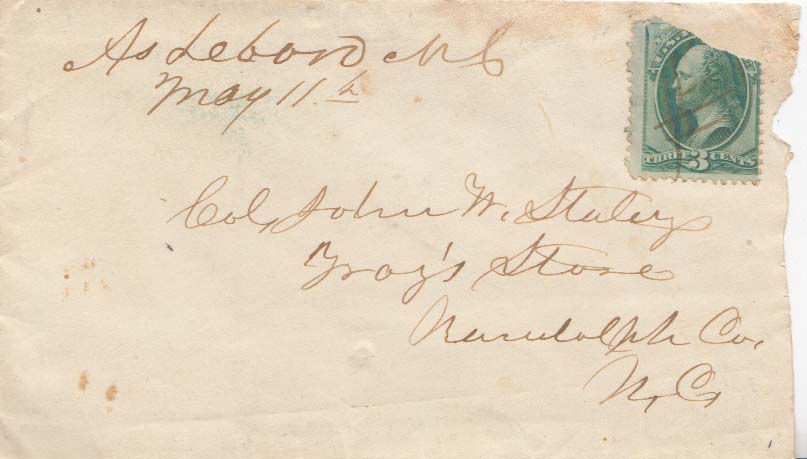 Asheboro N C
May 11th
Col, John W. Staley
Troy's Store
Randolph Co,
N, C,
THREE 3 CENTS